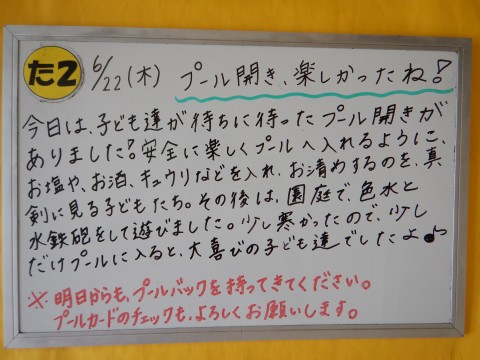 た2 6/22(木) プール開き、楽しかったね!
今日は、子ども達が待ちに待ったプール開きが
ありました!安全に楽しくプールへ入れるように、
お塩や、お酒、キュウリなどを入れ、お清めするのを、真
剣に見る子どもたち。その後は、園庭で、色水と
水鉄砲をして遊びました。少し寒かったので、少し
だけプールに入ると、大喜びの子ども達でしたよ♪
※明日からも、プールバックを持ってきてください。
プールカードのチェックも、よろしくお願いします。